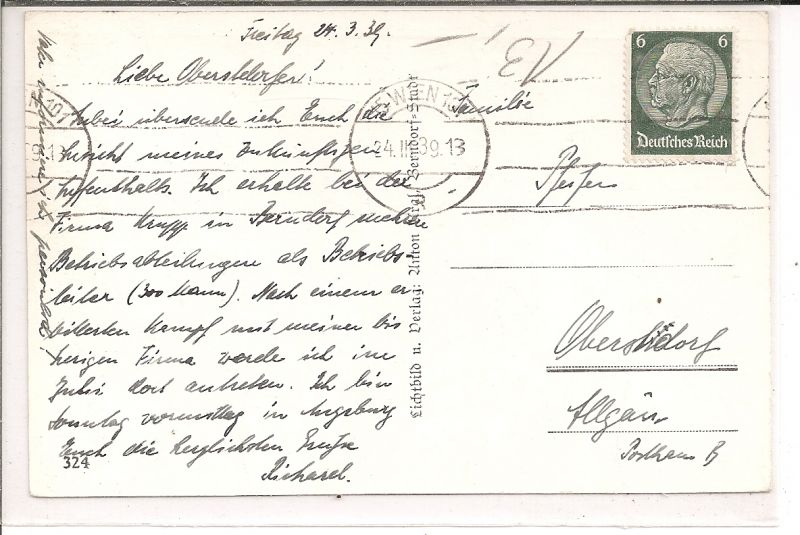 Freitag 24.3.39.
Liebe Oberstdorfer!
Anbei übersende ich Euch die
Ansicht meines zukünftigen
Aufenthalts. Ich erhalte bei der
Firma Krupp in Berndorf mehrere
Betriebsabteilungen als Betriebs-
leiter (300 Mann). Nach einem er
bitterten Kampf mit meiner bis
herigen Firma werde ich im
Juli dort antreten. Ich bin
Sonntag vormittag in Augsburg
Euch die herzlichsten Grüße
Richard.
324
persönlich!
Lichtbild u. Verlag: Anton Graf, Berndorf-Stadt
WIEN
24.III.39.13
6 6
Deutsches Reich
Familie
Oberstdorf
Allgäu
Posthaus B